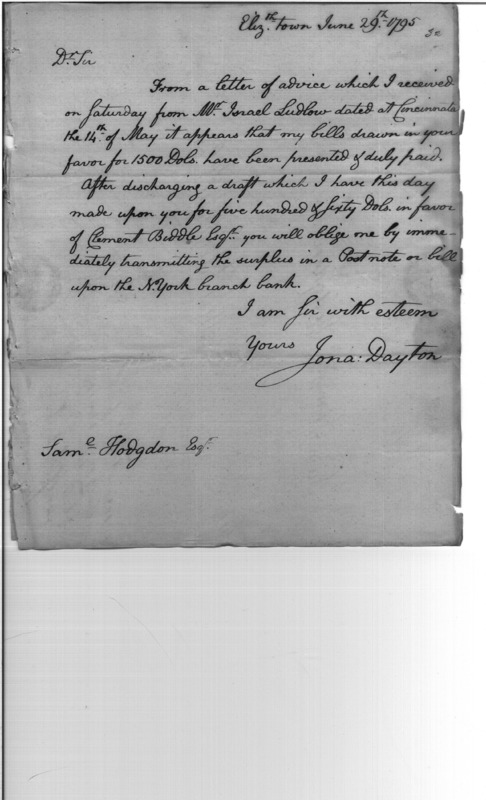 Eliz.th town June 29th 1795
Dr. Sir
From a letter of advice which I received
on Saturday from Mr. Israel Ludlow dated at Cincinnata
the 14th. of May it appears that my bills drawn in your
favor for 1500 Dols. have been presented & duly paid.
After discharging a draft which I have this day
made upon you for five hundred & sixty Dols. in favor
of Clement Biddle Esqr. you will oblige me by imme-
diately transmitting the surplus in a Post note or bill
upon the N York branch bank.
I am Sir with esteem
Yours
Jona: Dayton
Saml. Hodgdon Esqr.